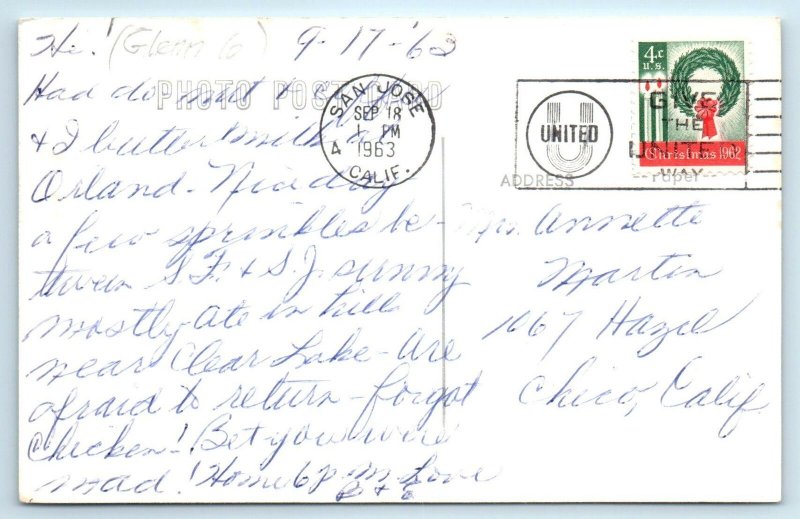 Hi! (Glenn Co) 9-17-'63
PHOTO POSTCARD
Had do nut & coffee
& I buttermilk in
Orland - Nice day
a few sprinkles be-
tween S.F. & S.J. sunny
mostly - ate in hills
near Clear Lake - Are
afraid to return - forgot
chicken! Bet you were
mad! Home 6 p.m. Love
SAN JOSE
SEP 18
1 PM
1963
4
CALIF.
UNITED
GIVE
THE
UNITED
WAY
4c
U.S.
Christmas 1962
ADDRESS
Mrs. Annette
Martin
1067 Hazel
Chico, Calif.